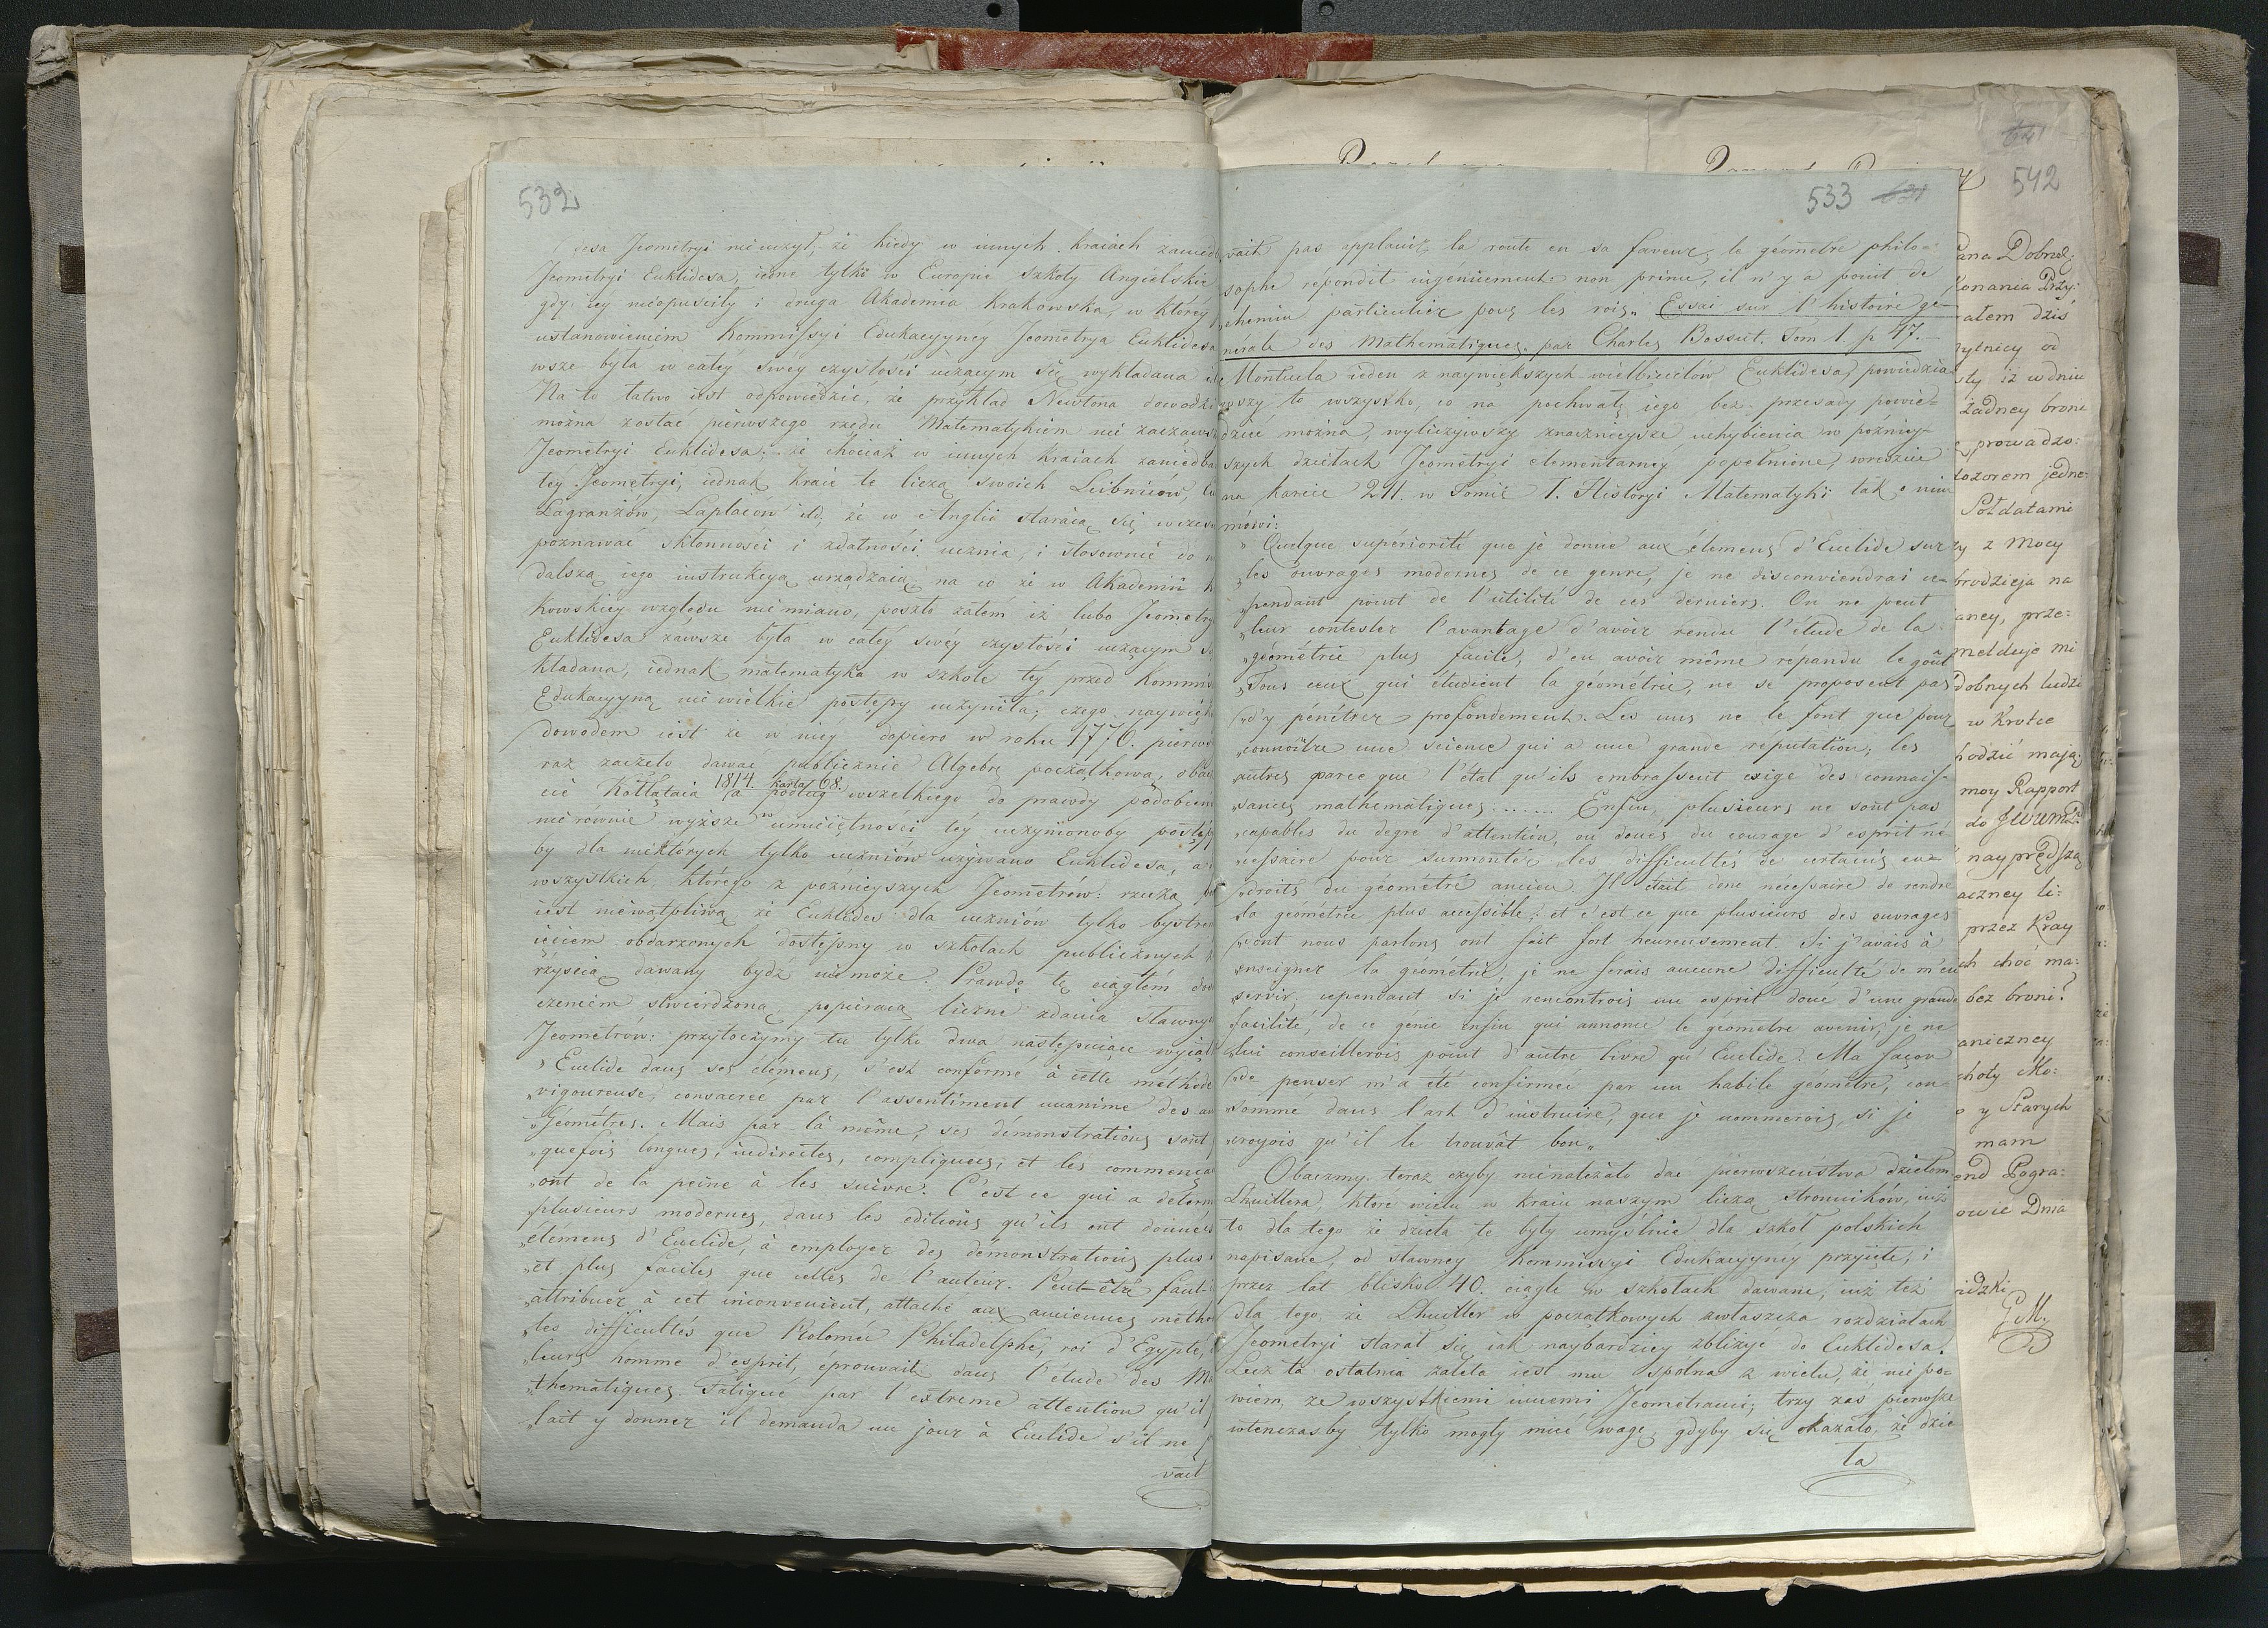 532
desa Jeometryi nie uczył; że kiedy w innych kraiach zanied
Jeometryi Euklidesa, iedne tylko w Europie szkoły Angielskie
gdy iey nieopuściły i druga Akademia Krakowska, w którey
ustanowieniem Kommissyi Edukacyyney Jeometrya Euklidesa
wsze była w całey swéy czystości uczącym się wykładana
Na to łatwo iest odpowiedzić, że przykład Newtona dowodzi
można zostać pierwszego rzędu Matematykiem nie zacząwsz
Jeometryi Euklidesa; że chociaż w innych kraiach zaniedba
tey Jeometryi, iednak kraie te liczą swoich Leibniców,
Lagranżów, Laplaców itd, że w Anglii staraią się wcześ
poznawać skłonności i zdatności ucznia, i stosownie do
dalszą iego instrukcyą urządzaią; na co że w Akademii
kowskiéy względu nie miano, poszło zatém iż lubo Jeometry
Euklidesa zawsze była w całéy swéy czystości uczącym
kładana, iednak matematyka w szkole téy przed Kommis
Edukacyyną nie wielkie postępy uczyniła; czego naywięk
dowodem iest że w niéy dopiero w roku 1776. pierws
raz zaczęto dawać publicznie Algebrę początkową,
cie Kołłątaia 1814. karta 68. a podług wszelkiego do prawdy podobień
nierównie wyższe w umieiętności téy uczynionoby postęp
by dla niektórych tylko uczniów używano Euklidesa, a
wszystkich którego z poźnieyszych Jeometrów: rzeczą
iest niewątpliwą że Euklides dla uczniów tylko bystre
ięciem obdarzonych dostępny w szkołach publicznych
rzyścią dawany bydź nie może. Prawdę tę ciągłém
czeniem stwierdzoną popieraią liczne zdania sławny
Jeometrów: przytoczymy tu tylko dwa następuiące wyiąt
» Euclide dans ses élémens, s'est conformé à cette méthode
„rigoureuse, consacrée par l'assentiment unanime des
„Géomètres. Mais par là même, ses démonstrations sont
„quefois longues, indirectes, compliquées, et les commença
„ont de la peine à les suivre. C'est ce qui a déterm
„plusieurs modernes, dans les editions qu'ils ont données
„élémens d'Euclide, à employer des démonstrations plus
„et plus faciles que celles de l'auteur. Peut-être faut-
„attribuer à cet inconvenient, attaché aux anciennes métho
„les difficultés que Ptolomée Philadelphe, roi d'Egypte,
„leurs homme d'esprit, éprouvait dans l'étude des Ma
„thematiques. Fatigué par l'extreme attention qu'il
„lait y donner il demanda un jour à Euclide s'il ne
vait
533
„vait pas applanir la route en sa faveur, le géometre philo-
„sophe repondit ingénüement: non prince, il n'y a point de
„chemin particulier pour les rois„ Essai sur l'histoire ge-
nerale des Mathématiques par Charles Bossut. Tom 1. p 47.
Montucla ieden z naywiększych wielbicielów Euklidesa, powiedzia
wszy to wszystko, co na pochwałę iego bez przesady powie-
dzieć można, wyliczywszy znacznieysze uchybienia w poźniey-
szych dziełach Jeometryi elementarney popełnione, wreszcie
na karcie 211. w Tomie I. Historyi Matematyki tak o nim
mówi:
» Quelque supériorité que je donne aux élemens d'Euclide sur
„les ouvrages modernes de ce genre, je ne disconviendrai ce-
„pendant point de l'utilité de ces derniers. On ne peut
„leur contester l'avantage d'avoir rendu l'étude de la
„géométrie plus facile, d'en avoir même répandu le goût
„Tous ceux qui etudient la géométrie, ne se proposent pas
„d'y pénétrer profondement. Les uns ne le font que pour
„connoître une science qui a une grande réputation; les
„autres parce que l'état qu'ils embrassent exige des connais-
„sances mathematiques ....... Enfin, plusieurs ne sont pas
„capables du degré d'attention, ou doués du courage d'esprit né-
„cessaire pour surmonter les difficultés de certains en-
„droits du géométre ancien. Il était donc nécessaire de rendre
„la géométrie plus accessible; et c'est ce que plusieurs des ouvrages
„dont nous parlons ont fait fort heureusement. Si j'avais à
„enseigner la géométrie, je ne ferais aucune difficulté de m'en
„servir; cependant si je rencontrois un esprit doué d'une grande
„facilité, de ce génie enfin qui annonce le géometre avenir, je ne
„lui conseillerois point d'autre livre qu'Euclide. Ma façon
„de penser m'a été confirmée par un habile géometre, con-
„sommé dans l'art d'instruire, que je nommerois, si je
„croyois qu'il le trouvât bon„
Obaczmy teraz czyby nienależało dać pierwszeństwa dziełom
Lhuillera, które wielu w kraiu naszym liczą stronników, iuż
to dla tego że dzieła te były umyślnie dla szkoł polskich
napisane, od sławney Kommissyi Edukacyynéy przyięte; i
przez lat blisko 40. ciągle w szkołach dawane, iuż też
dla tego, że Lhuiller w początkowych zwłaszcza rozdziałach
Jeometryi starał się iak naybardziey zbliżyć do Euklidesa.
Lecz ta ostatnia zaleta iest mu spólna z wielu, że nie po-
wiem, ze wszystkiemi innemi Jeometrami; trzy zaś pierwsze
wtenczasby tylko mogły mieć wagę, gdyby się okazało, że dzie
ła
542
ana Dobrod:
konania Przy:
ałem dziś
ytnicy od
sty iż w dniu
żadney broni
prowadzo:
dozorem jedne:
Sołdatami
z Mocy
brodzieja na
aney, prze:
melduje mi
dobnych ludzi
w Krotce
hodzić mają;
moy Rapport
do JWWm
nayprędszą
aczney li:
przez Kray
ch choć ma:
bez broni?
aniczney
choty Mo:
y Starych
mam
end Pogra:
owie Dnia
idzki
G.M.